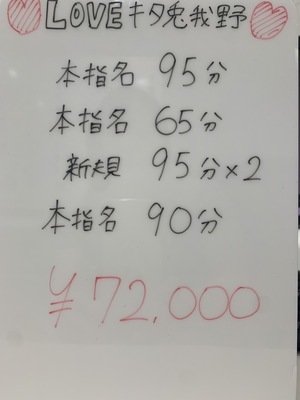 LOVEキタ兎我野
本指名 95分
本指名 65分
新規 95分×2
本指名 90分
¥72,000